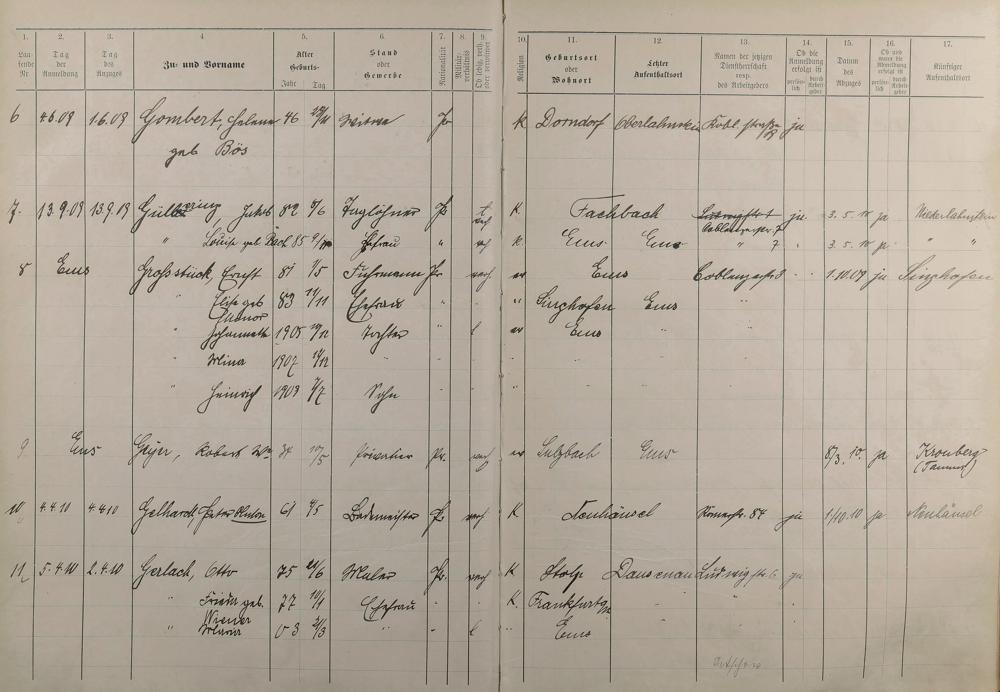 1. 2. 3. 4 5. 6. 7. 8. 9. 10. 11. 12. 13. 14. 15. 16. 17.
Lau-fende Nr. Tag der Anmeldung Tag des Anzuges Zu- und Vorname Alter Geburts- Jahr Tag Stand oder Gewerbe Nationalität Militär-verhältnis Ob ledig, verh. oder verwitwet Religion Geburtsort oder Wohnort Letzter Aufenthaltsort Namen der jetzigen Dienstherrschaft resp. des Arbeitgebers Ob die Anmeldung erfolgt ist persön-lich durch Arbeit-geber Datum des Abzuges Ob und wann die Abmeldung erfolgt ist persön-lich durch Arbeit-geber Künftiger Aufenthaltsort
6 4.6.09 1.6.09 Gombert, Helene 46 Witwe Pr K Dorndorf Oberlahnstein Kobl. straße ja
geb Bös
7. 13.9.09 13.9.09 Jakob 82 5/6 Taglöhner Pr verh K. Fachbach Coblenzerstr. 7 ja 3.5.10 ja Niederlahnstein
" Louise geb Bach 85 Ehefrau " vh k. Ems Ems " 7 3.5.10 "
8 Ems Grossstück, Ernst 81 1/5 Fuhrmann Pr verh ev Ems Coblenzerstr 8 1.10.09 ja Singhofen
" Elise geb 83 11/11 Ehefrau " Singhofen Ems
Johannette 1905 Tochter l ev Ems "
" Mina 1907
" Heinrich 1908 7/7 Sohn
9 Ems Geyer, Robert Wm 34 10/5 Privatier Pr. verh ev Sulzbach Ems 8/3.10. ja Kronberg
(Taunus)
10 4.4.10 4.4.10 Gelhardt, Peter Anton 61 4/5 Bademeister Pr verh K Neuhäusel Römerstr. 84 ja 1/10.10 ja Neuhäusel
11 5.4.10 2.4.10 Gerlach, Otto 75 Maler Pr. verh K Stolp Dausenau Ludwigstr. 6 ja
" Frieda geb. 77 10/1 Ehefrau K. Frankfurt a/M
Wiener
" Maria 03 3/3 " l " Ems